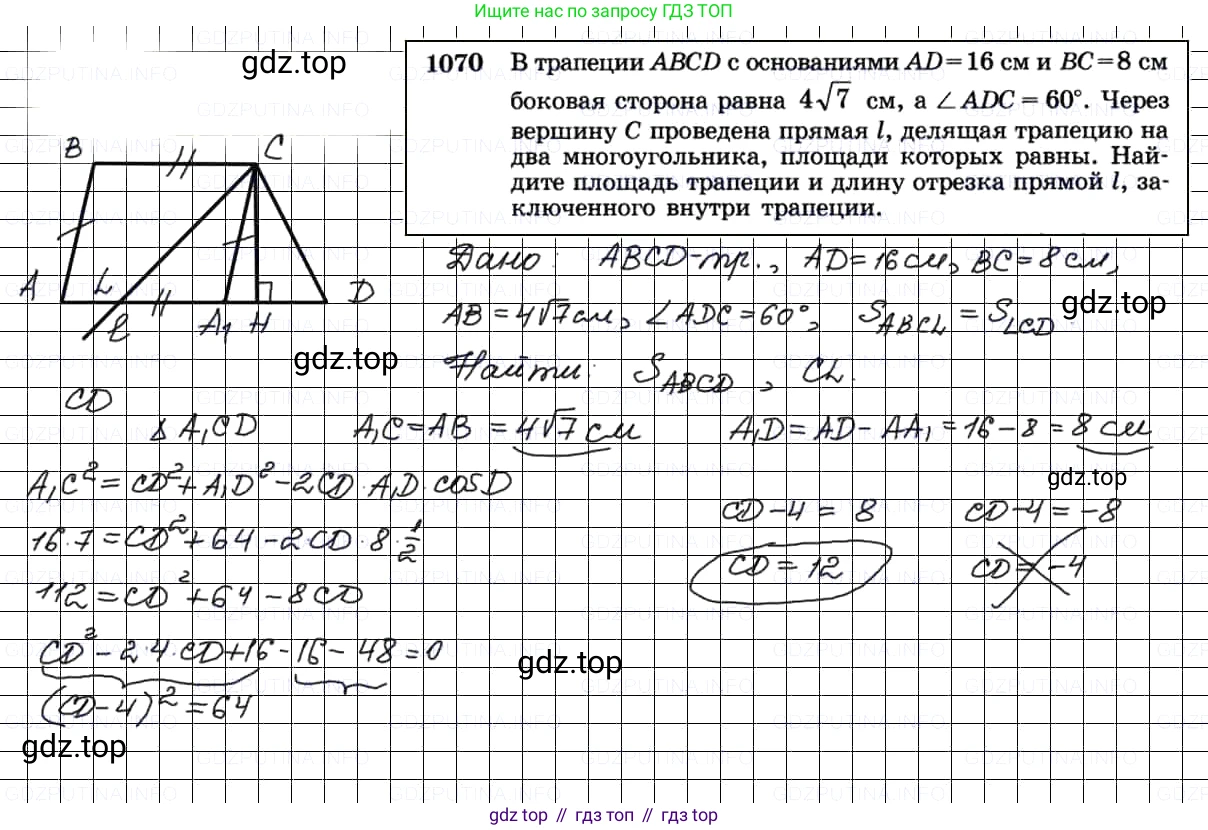 Ищите нас по запросу ГДЗ ТОП
1070 В трапеции ABCD с основаниями AD=16 см и BC=8 см
боковая сторона равна 4√7 см, а ∠ADC=60°. Через
вершину C проведена прямая l, делящая трапецию на
два многоугольника, площади которых равны. Най-
дите площадь трапеции и длину отрезка прямой l, за-
ключенного внутри трапеции.
gdz.top
B C
A L D
ℓ A₁ H
Дано: ABCD-тр., AD=16см, BC=8см,
gdz.top
AB=4√7см, ∠ADC=60°, S_ABCL=S_LCD
gdz.top
Найти: S_ABCD, CL.
CD
Δ A₁CD A₁C=AB=4√7 см A₁D=AD-AA₁=16-8=8 см
gdz.top
A₁C²=CD²+A₁D²-2CD·A₁D·cosD
CD-4=8 CD-4=-8
16·7=CD²+64-2·CD·8·1/2
CD=12 CD=-4
112=CD²+64-8CD
CD²-2·4·CD+16-16-48=0
gdz.top
(CD-4)²=64
gdz.top
gdz top // гдз топ // gdz top